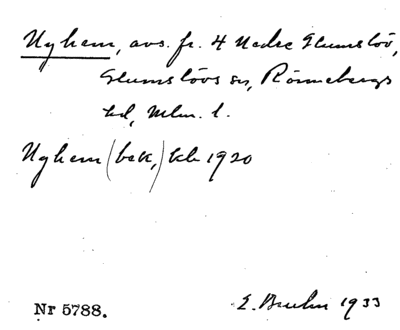 Nyhem, avs. fr. 4 Nedre Glumslöv,
Glumslövs sn, Rönnebergs
hd, Mlm. l.
Nyhem (bek,) kb 1920
Nr 5788. E. Bruhn 1933